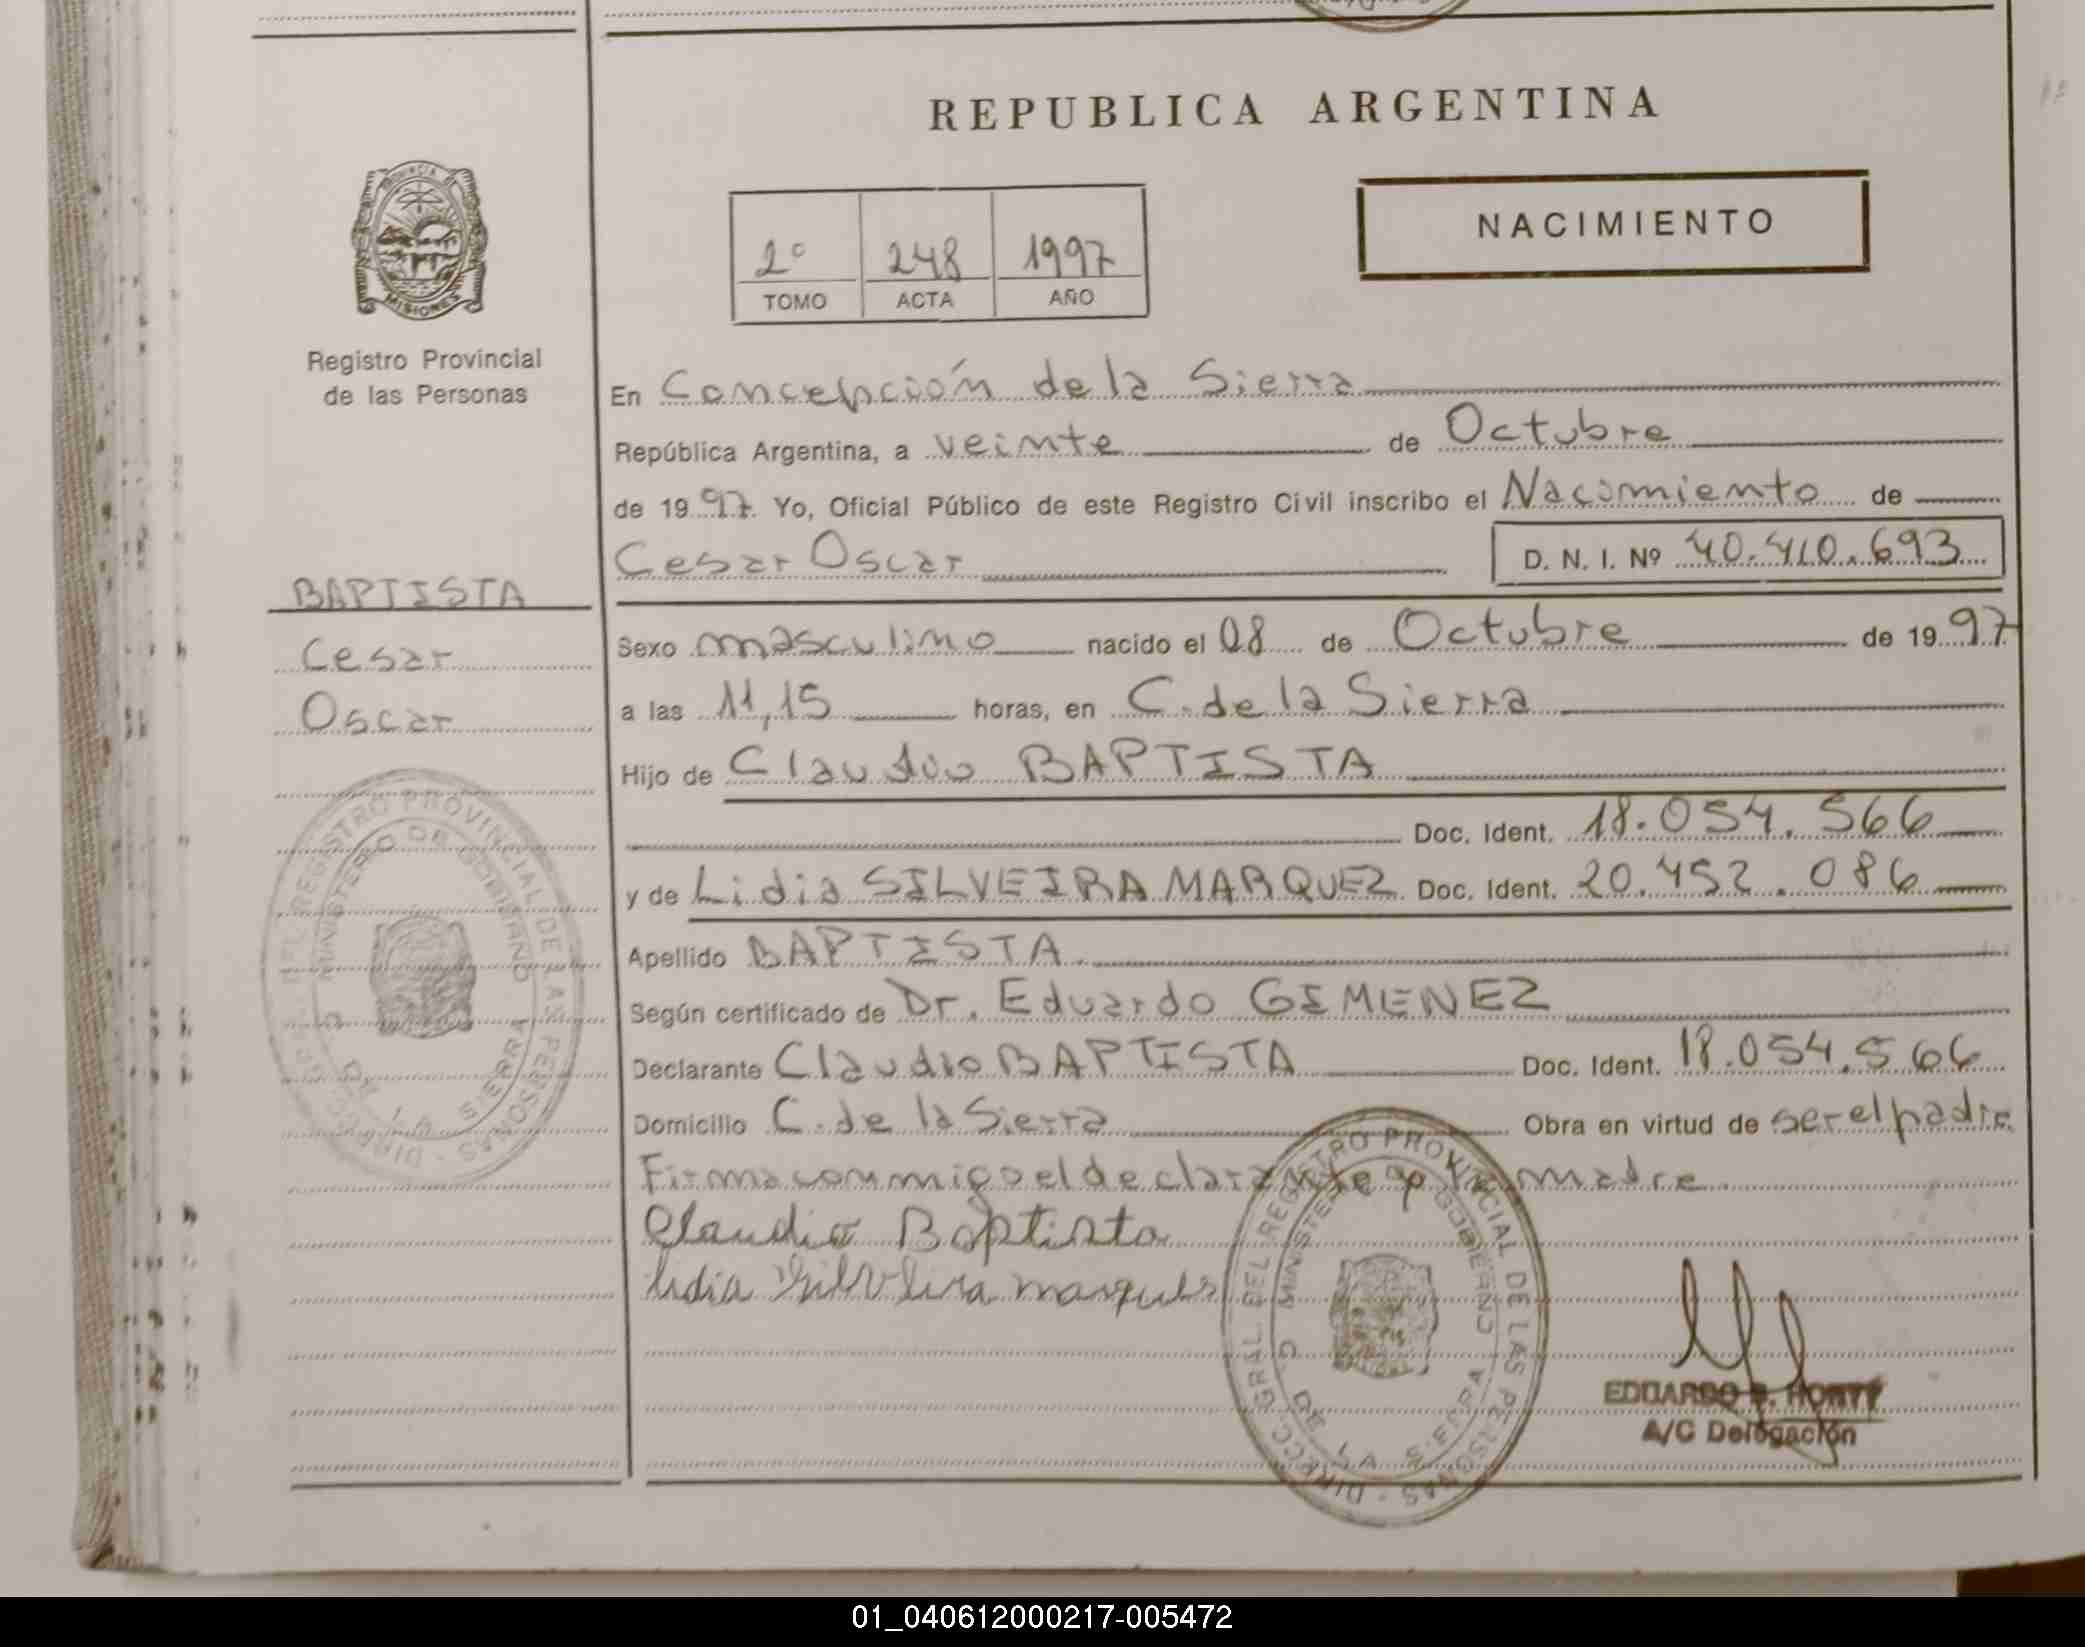 REPUBLICA ARGENTINA
NACIMIENTO
2º 248 1997
TOMO ACTA AÑO
PROVINCIA DE MISIONES
Registro Provincial
de las Personas
BAPTISTA
Cesar
Oscar
En Concepción de la Sierra
República Argentina, a veinte de Octubre
de 1997. Yo, Oficial Público de este Registro Civil inscribo el Nacimiento de
Cesar Oscar D. N. I. Nº 40.410.693
Sexo masculino nacido el 08 de Octubre de 1997
a las 11,15 horas, en C. de la Sierra
Hijo de Claudio BAPTISTA
Doc. Ident. 18.054.566
y de Lidia SILVEIRA MARQUEZ Doc. Ident. 20.452.086
Apellido BAPTISTA
Según certificado de Dr. Eduardo GIMENEZ
Declarante Claudio BAPTISTA Doc. Ident. 18.054.566
Domicilio C. de la Sierra Obra en virtud de ser el padre
Firma conmigo el declarante y la madre
Claudio Baptista
Lidia Silveira marques
DIRECC. GRAL. DEL REGISTRO PROVINCIAL DE LAS PERSONAS
MINISTERIO DE GOBIERNO
C. DE LA SIERRA
A/C Delegación
01_040612000217-005472